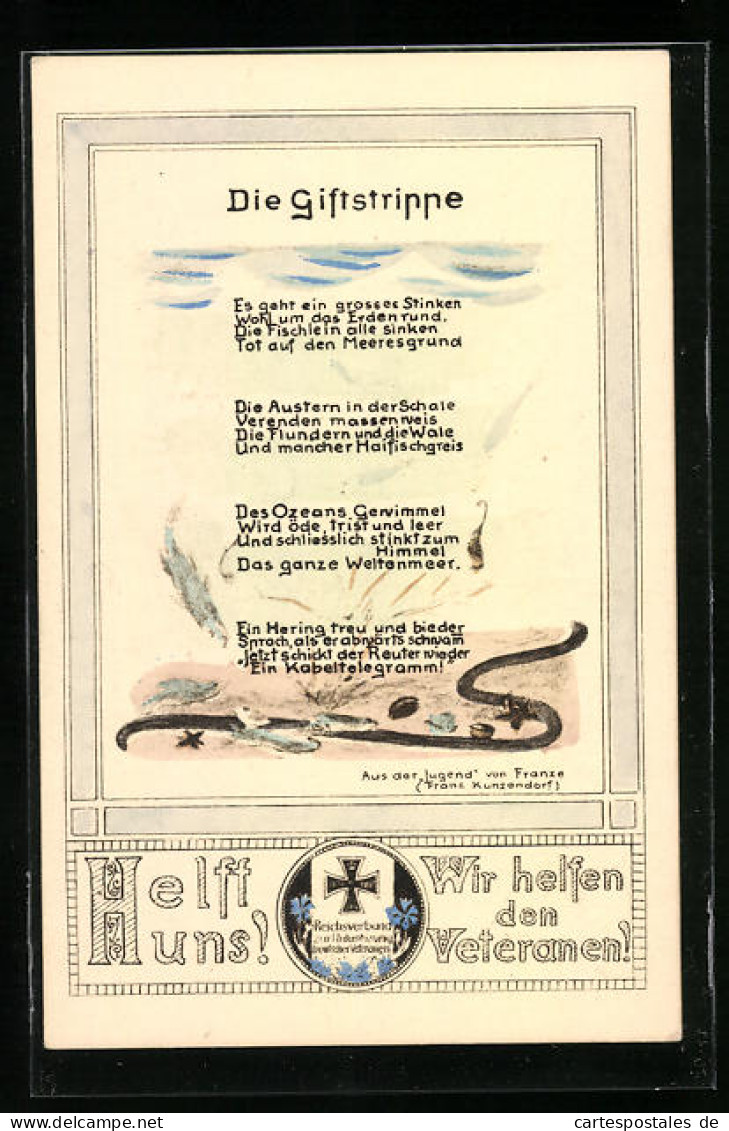 Die Giftstrippe
Es geht ein grosses Stinken
Wohl um das Erdenrund.
Die Fischlein alle sinken
Tot auf den Meeresgrund
Die Austern in der Schale
Verenden massenweis
Die Flundern und die Wale
Und mancher Haifischgreis
Des Ozeans Gewimmel
Wird öde, trist und leer
Und schliesslich stinkt zum
Himmel
Das ganze Weltenmeer.
Ein Hering treu und bieder
Sprach, als er abwärts schwam
"Jetzt schickt der Reuter wieder
Ein Kabeltelegramm!"
Aus der "Jugend" von Franze
(Frans Kunzendorf)
Helft uns!
Reichsverband
zur Unterstützung
deutscher Veteranen
Wir helfen
den
Veteranen!
cartespostales de